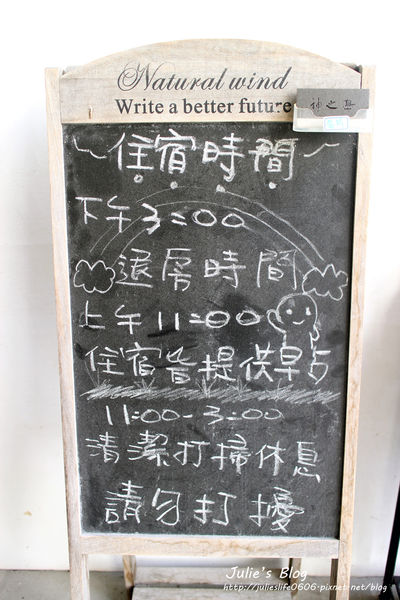 Natural wind
Write a better future
神之平
~住宿時間~
下午3:00
退房時間
上午11:00
住宿皆提供早占
11:00-3:00
清潔打掃休息
請勿打擾
Julie's Blog
http://julieslife0606.pixnet.net/blog